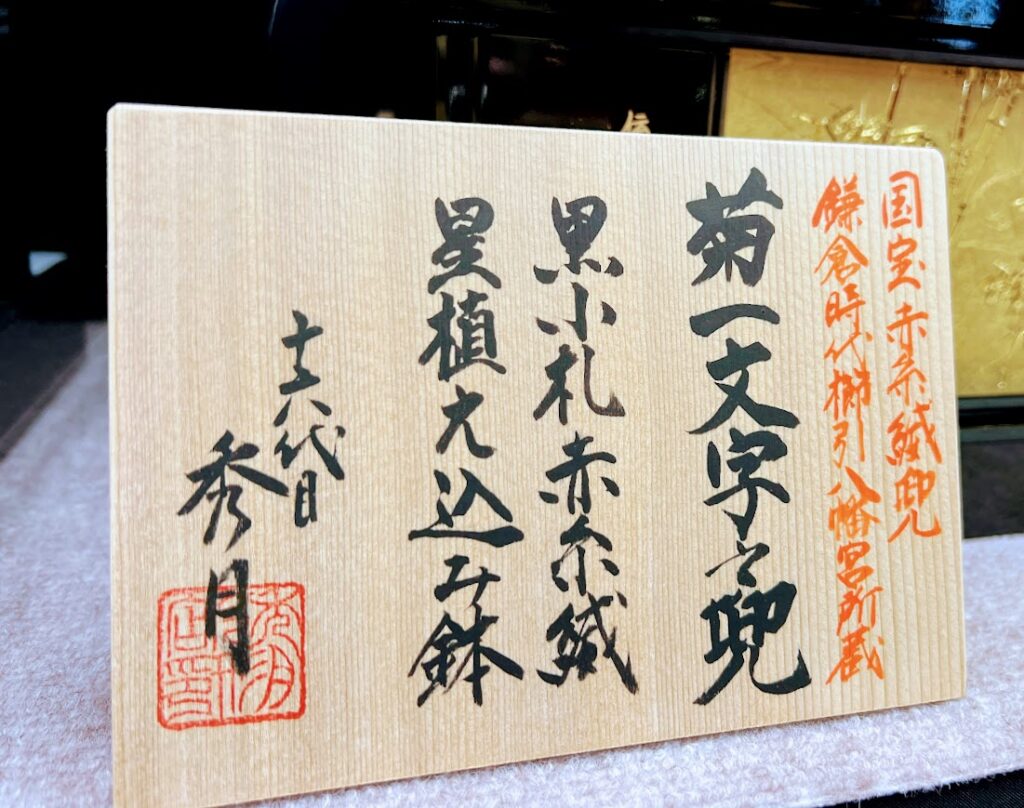 国宝 赤糸縅兜
鎌倉時代櫛引八幡宮所蔵
菊一文字之兜
黒小札赤糸縅
星植え込み鉢
十六代目
秀月